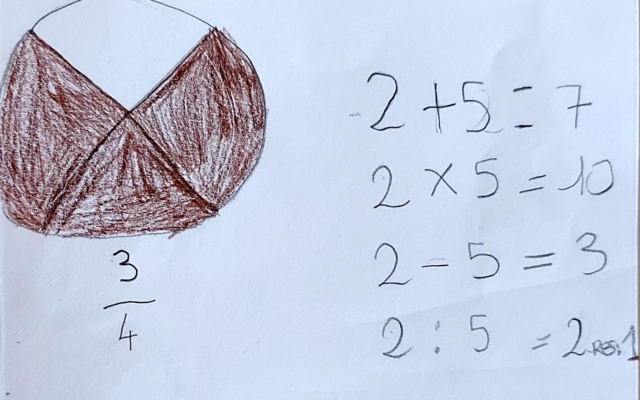 2 + 5 = 7
2 × 5 = 10
2 - 5 = 3
2 : 5 = 2 RES:1
3
4